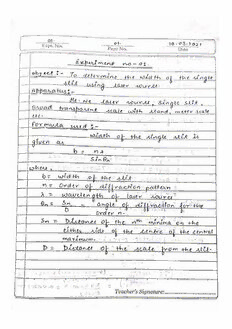 02
01
10-03-2021
Expt. No.
Page No.
Date
Experiment no-01
object :- To determine the width of the single
slit using laser source.
Apparatus:-
He-Ne laser source, single slit,
broad transparent scale with stand, meter scale
etc.
Formula used :-
width of the single slit is
given as
b = nλ
Sinθn
where,
b = width of the slit
n = order of diffraction pattern
λ = wavelength of laser source
θn = Sn = angle of diffraction for the
D order n.
Sn = Distance of the nth minima on the
either side of the centre of the central
maximum.
D = Distance of the scale from the slit.
Teacher's Signature: